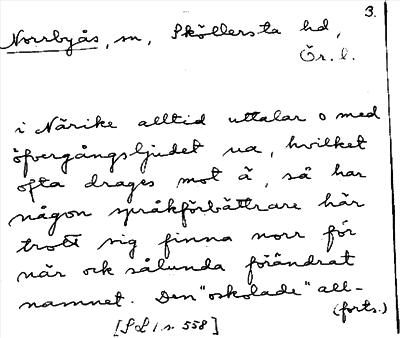 3.
Norrbyås, sn, Sköllersta hd,
Ör. l.
i Närike alltid uttalar o med
öfvergångsljudet ua, hvilket
ofta drages mot ä, så har
någon språkförbättrare här
trott sig finna norr för
när och sålunda förändrat
namnet. Den "oskolade" all-
(forts.)
[SL 1. s. 558]